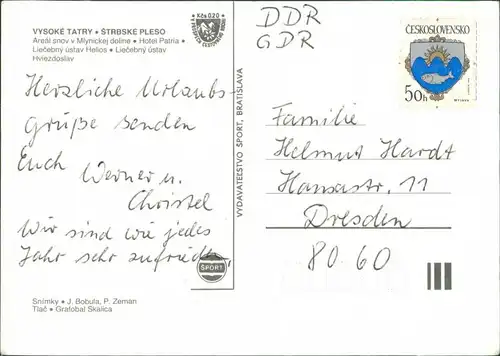 VYSOKÉ TATRY • ŠTRBSKÉ PLESO
Areál snov v Mlynickej doline • Hotel Patria •
Liečebný ústav Helios • Liečebný ústav
Hviezdoslav
Kčs 0,20
Herzliche Urlaubs-
grüße senden
Euch Werner u.
Christel
Wir sind wie jedes
Jahr sehr zufrieden.
ŠPORT
Snímky • J. Bobula, P. Zeman
Tlač • Grafobal Skalica
VYDAVATEĽSTVO ŠPORT, BRATISLAVA
DDR
GDR
ČESKOSLOVENSKO
50h
Familie
Helmut Hardt
Hansastr. 11
Dresden
8060